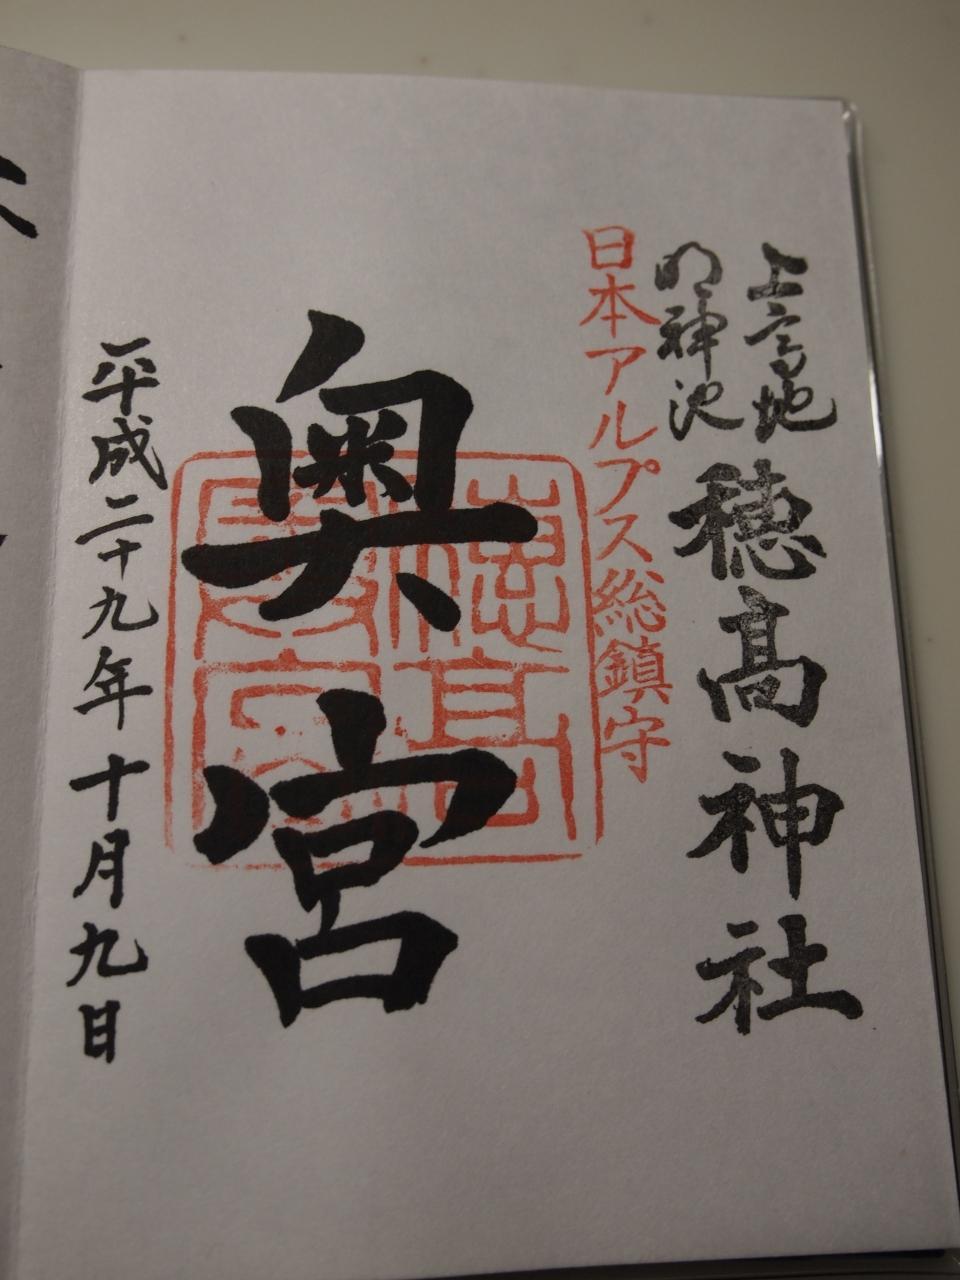 上高地
明神池
穂髙神社
日本アルプス総鎮守
奥宮
平成二十九年十月九日